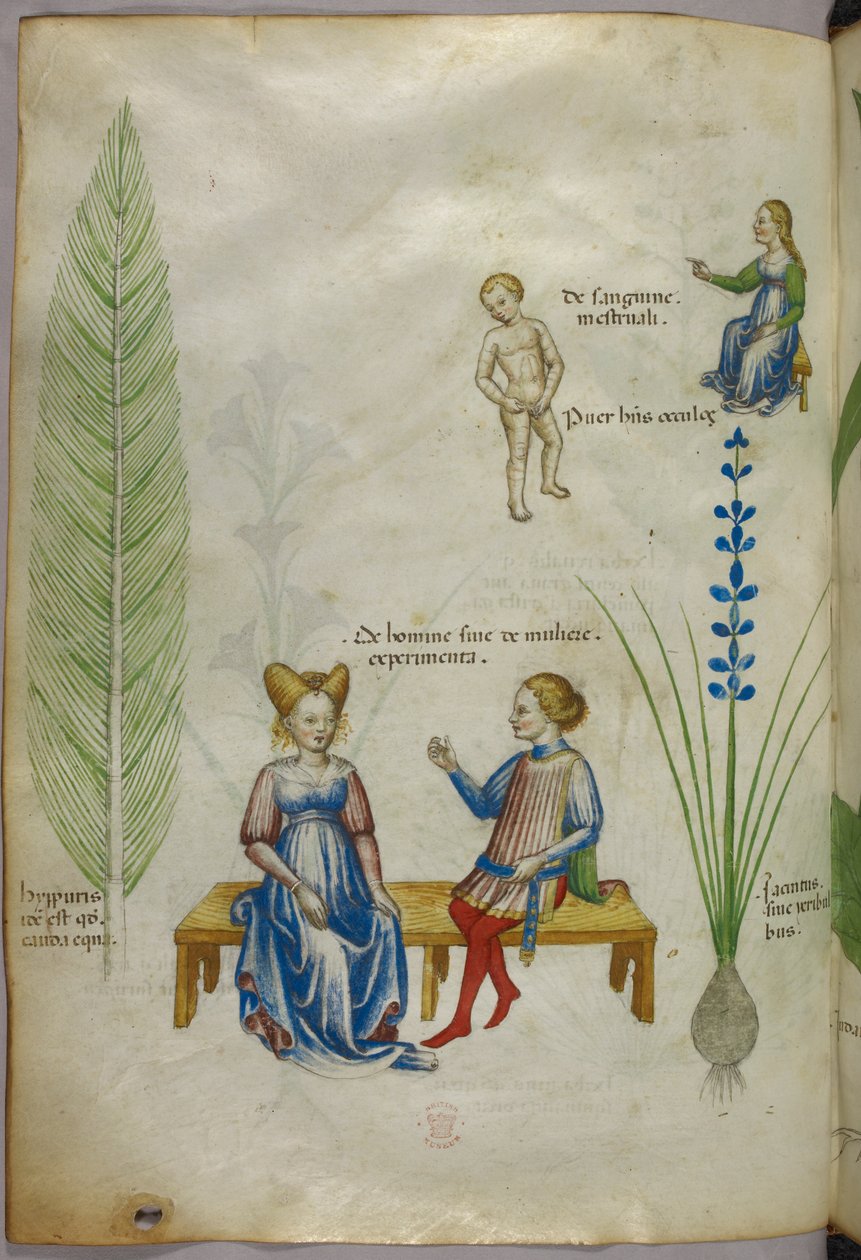 de sanguine.
mestruali.
Puer hñs
.De homine siue de muliere.
experimenta.
hyppuris
idē est qđ.
cauda equi.
Jacintus.
siue
bus.
BRITISH
MUSEUM